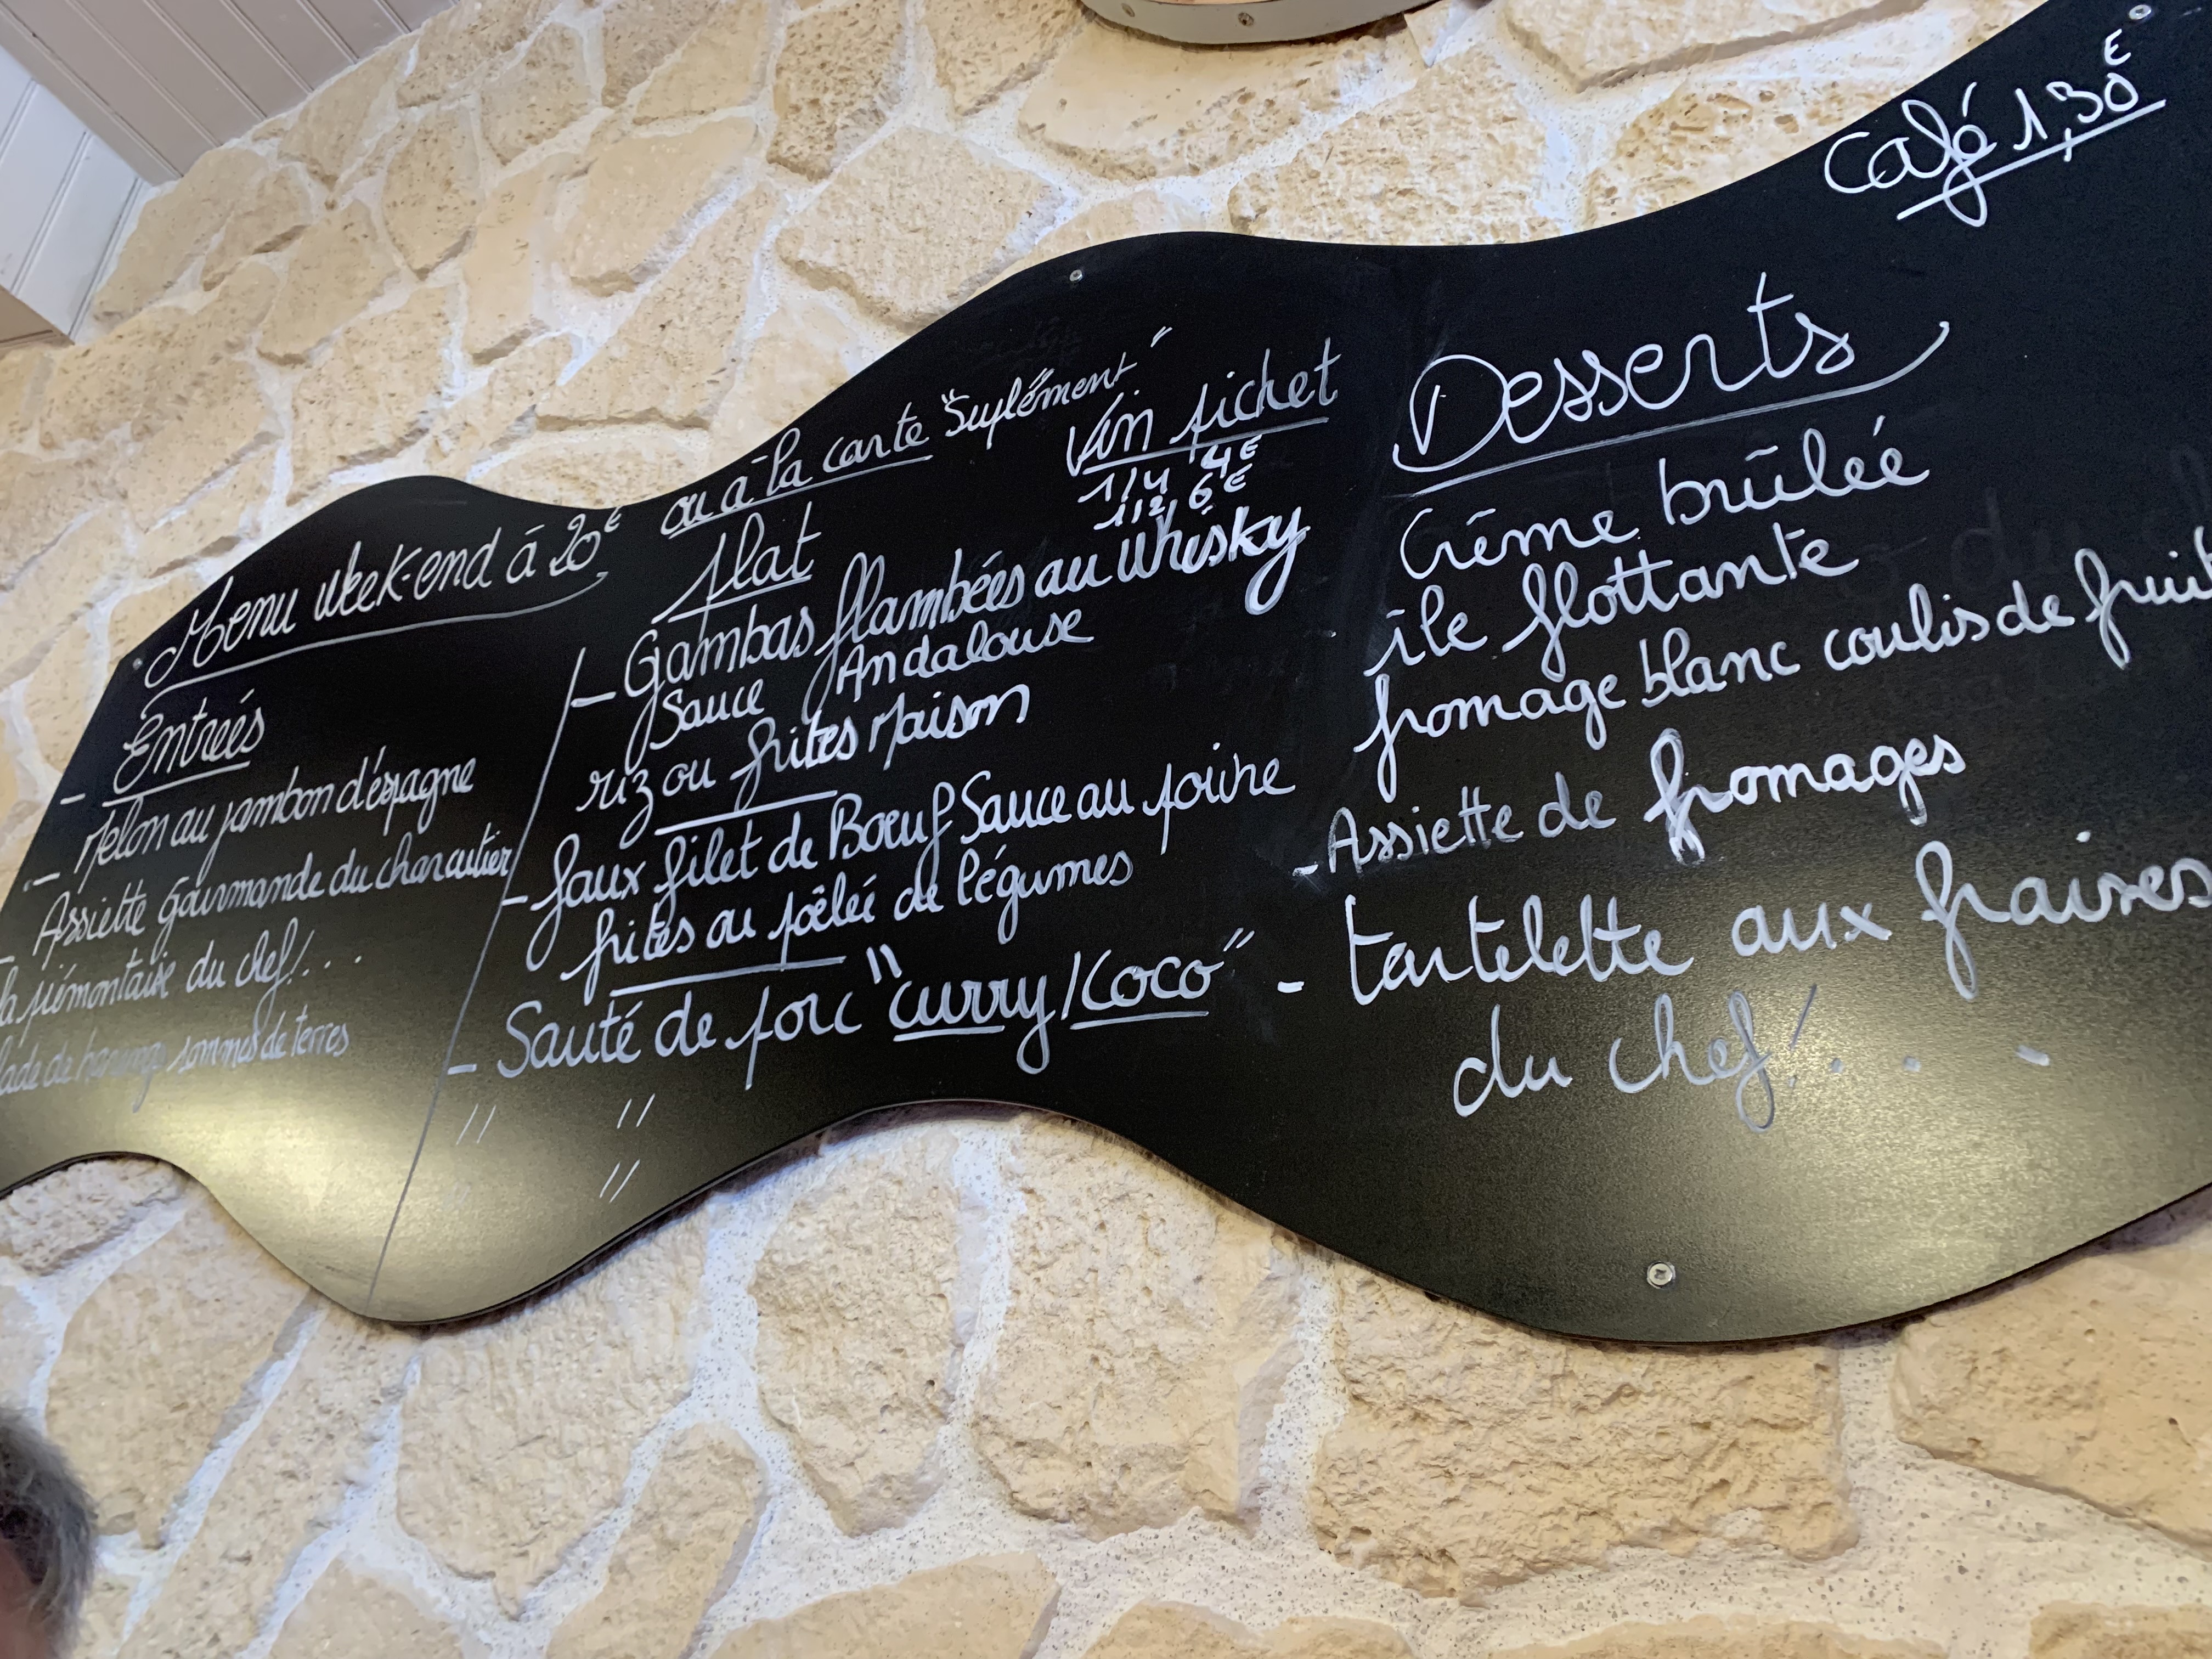 Menu week-end à 20€
ou à la carte "Suplément"
Entreés
- Melon au jambon d'éspagne
- Assiette Gourmande du charcutier
la piémontaise du chef!...
lade de harengs pommes de terres
plat
Vin pichet
1/4 4€
1/2 6€
- Gambas flambées au Whisky
Sauce Andalouse
riz ou frites Maison
- faux filet de Bœuf Sauce au poivre
frites ou poêleé de légumes
- Sauté de porc "curry/coco"
" "
"
Café 1,30€
Desserts
Crème brûleé
île flottante
fromage blanc coulis de fruit
- Assiette de fromages
- tartelette aux fraises
du chef!...